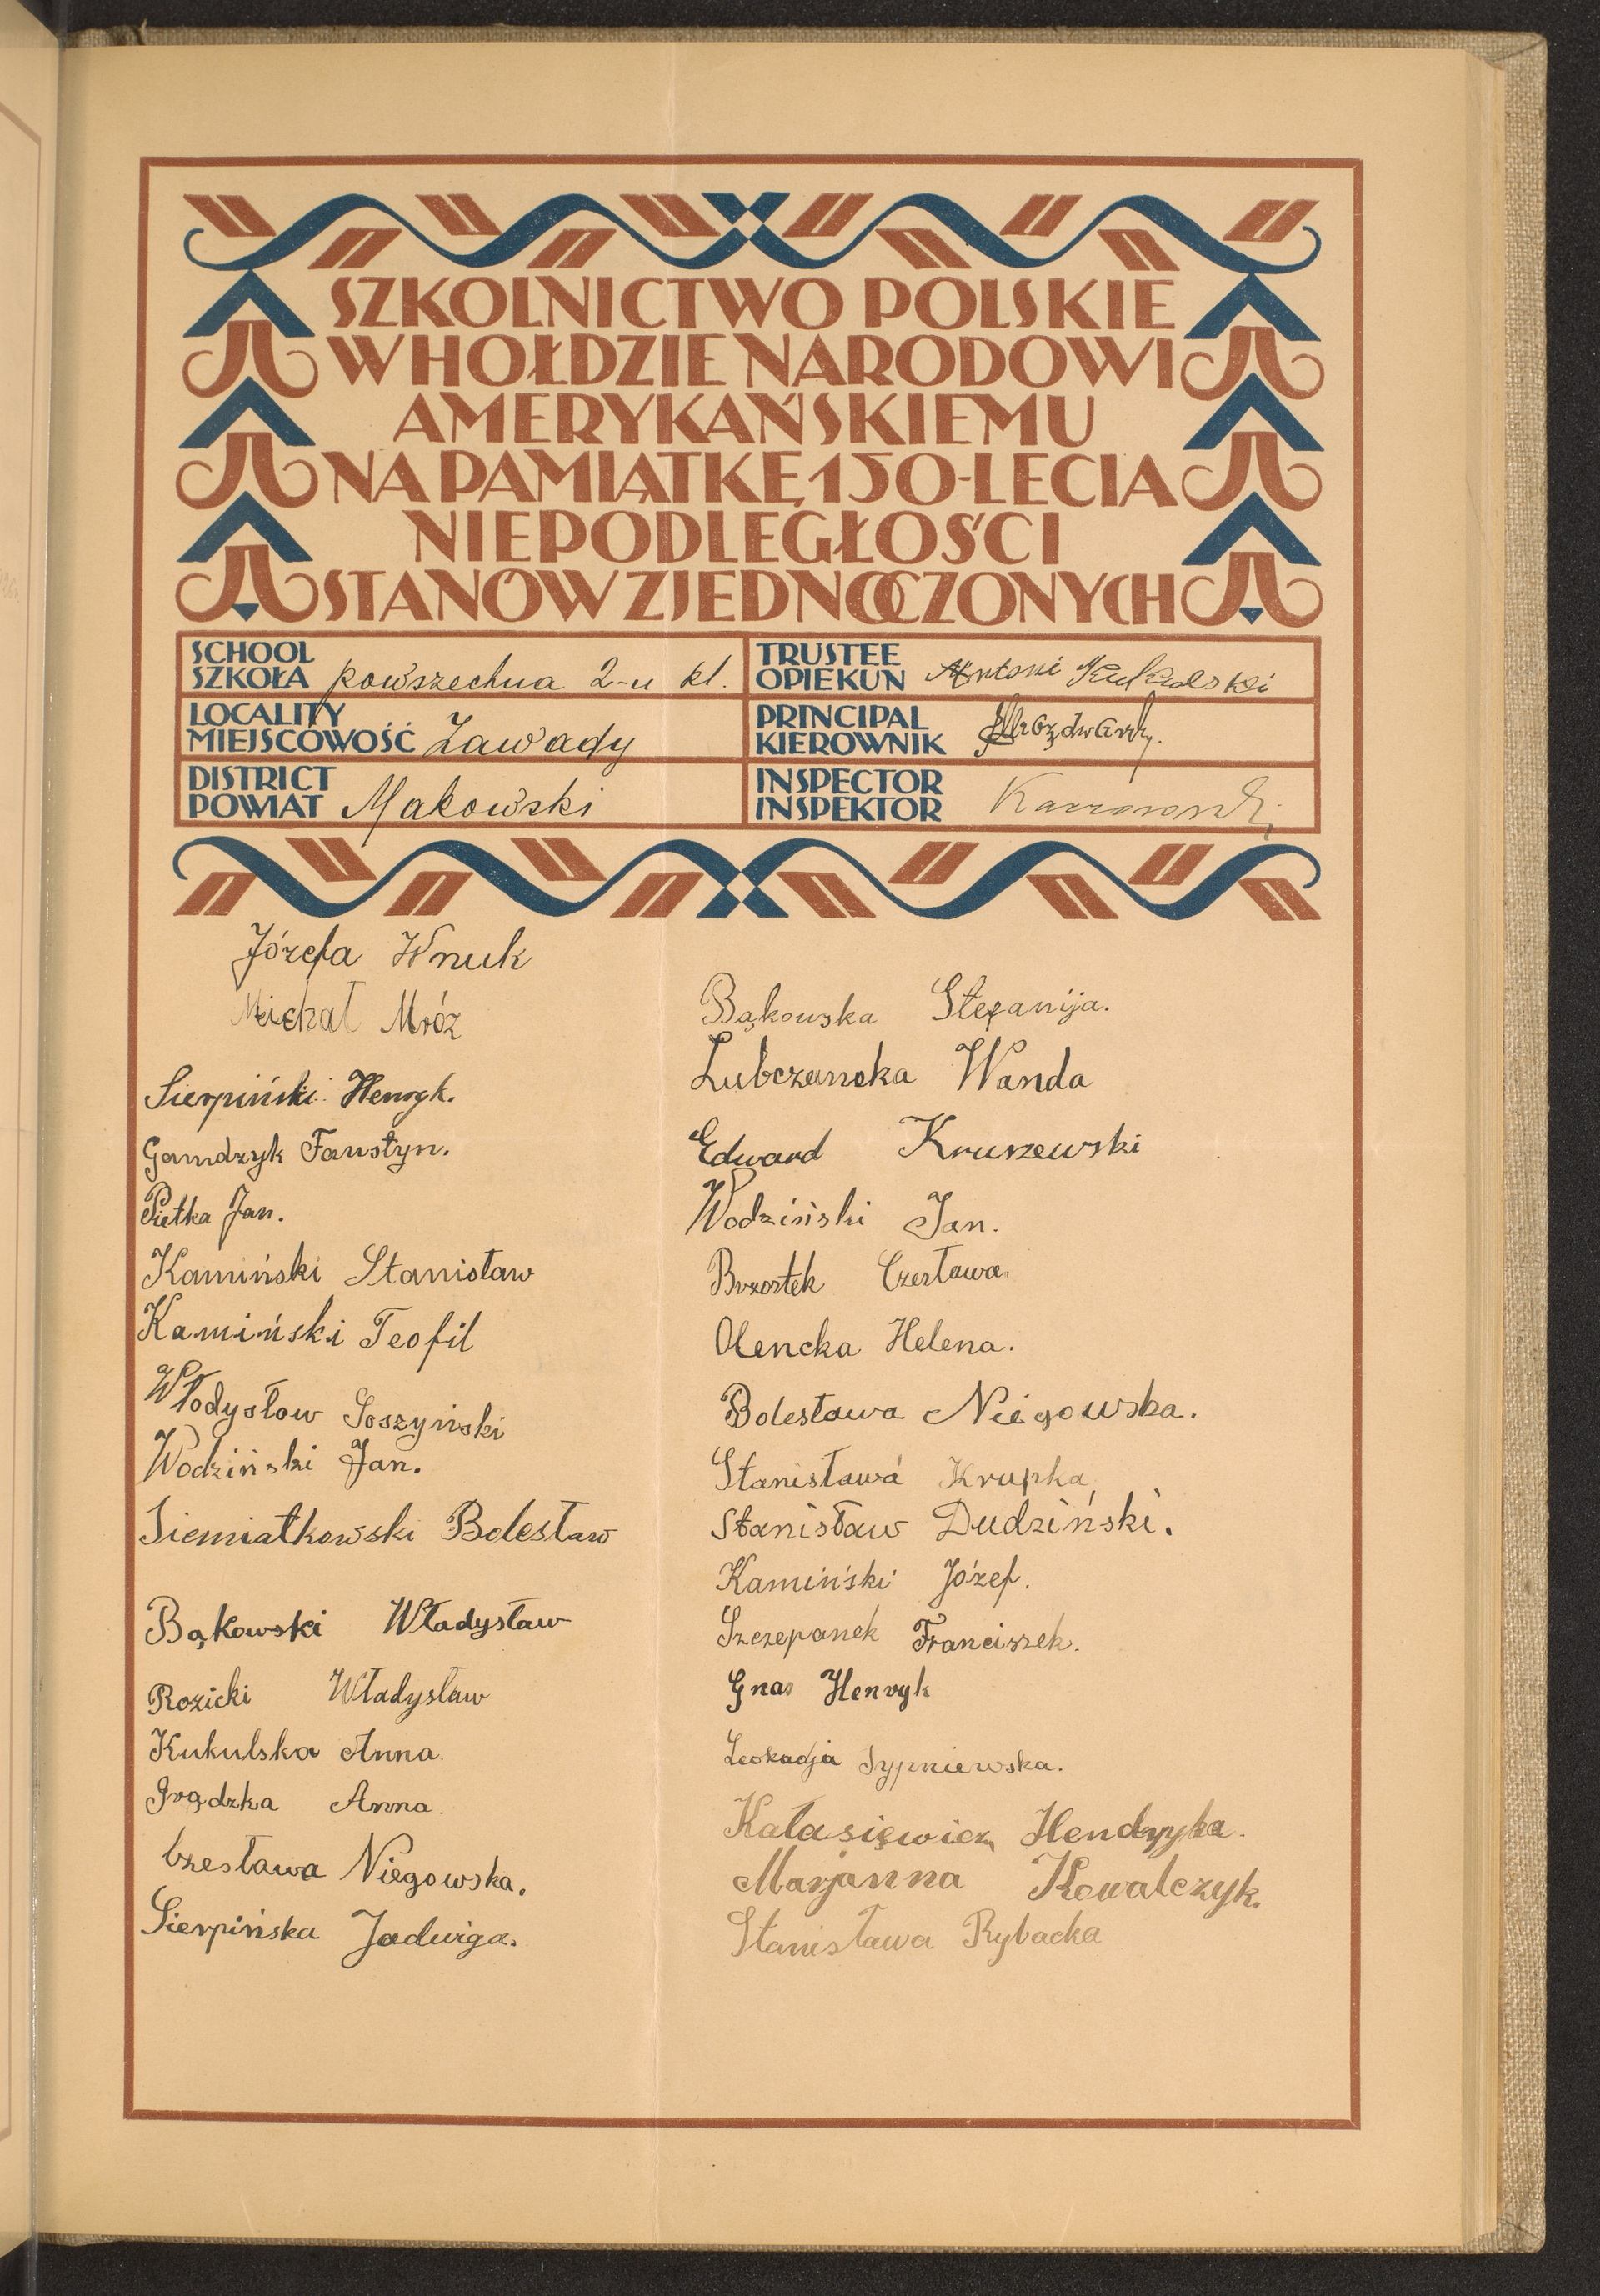 SZKOLNICTWO POLSKIE
W HOŁDZIE NARODOWI
AMERYKAŃSKIEMU
NA PAMIĄTKĘ 150-LECIA
NIEPODLEGŁOŚCI
STANÓW ZJEDNOCZONYCH
SCHOOL
SZKOŁA powszechna 2-u kl.
TRUSTEE
OPIEKUN Antoni Kukulski
LOCALITY
MIEJSCOWOŚĆ Zawady
PRINCIPAL
KIEROWNIK
DISTRICT
POWIAT Makowski
INSPECTOR
INSPEKTOR
Józefa Wnuk
Michał Mróz
Sierpiński Henryk.
Gamdzyk Faustyn.
Piętka Jan.
Kamiński Stanisław
Kamiński Teofil
Włodysłow Soszyński
Wodziński Jan.
Siemiatkowski Bolesław
Bąkowski Władysław
Rozicki Władysław
Kukulska Anna.
Grądzka Anna.
Czesława Niegowska.
Sierpińska Jadwiga.
Bąkowska Stefanija.
Lubczanska Wanda
Edward Kruszewski
Wodziński Jan.
Brzostek Czesława.
Olencka Helena.
Bolesława Niegowska.
Stanisława Krupka
Stanisław Dudziński.
Kamiński Józef.
Szczepanek Franciszek.
Gnas Henryk
Leokadja Sypniewska.
Kałasięwicz Hendryka.
Marjanna Kowalczyk.
Stanisława Rybacka